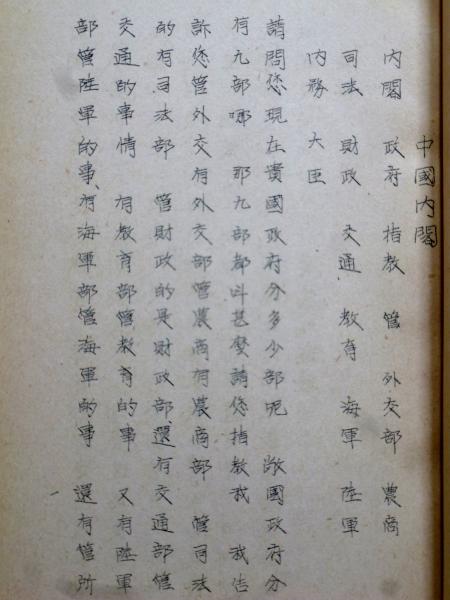 中國內閣
內閣 政府 指教 管 外交部 農商
司法 財政 交通 教育 海軍 陸軍
內務 大臣
請問您現在貴國政府分多少部呢 敝國政府分
有九部哪 那九部都叫甚麼請您指教我 我告
訴您管外交有外交部管農商有農商部 管司法
的有司法部 管財政的是財政部還有交通部管
交通的事情 有教育部管教育的事 又有陸軍
部管陸軍的事、有海軍部管海軍的事 還有管所